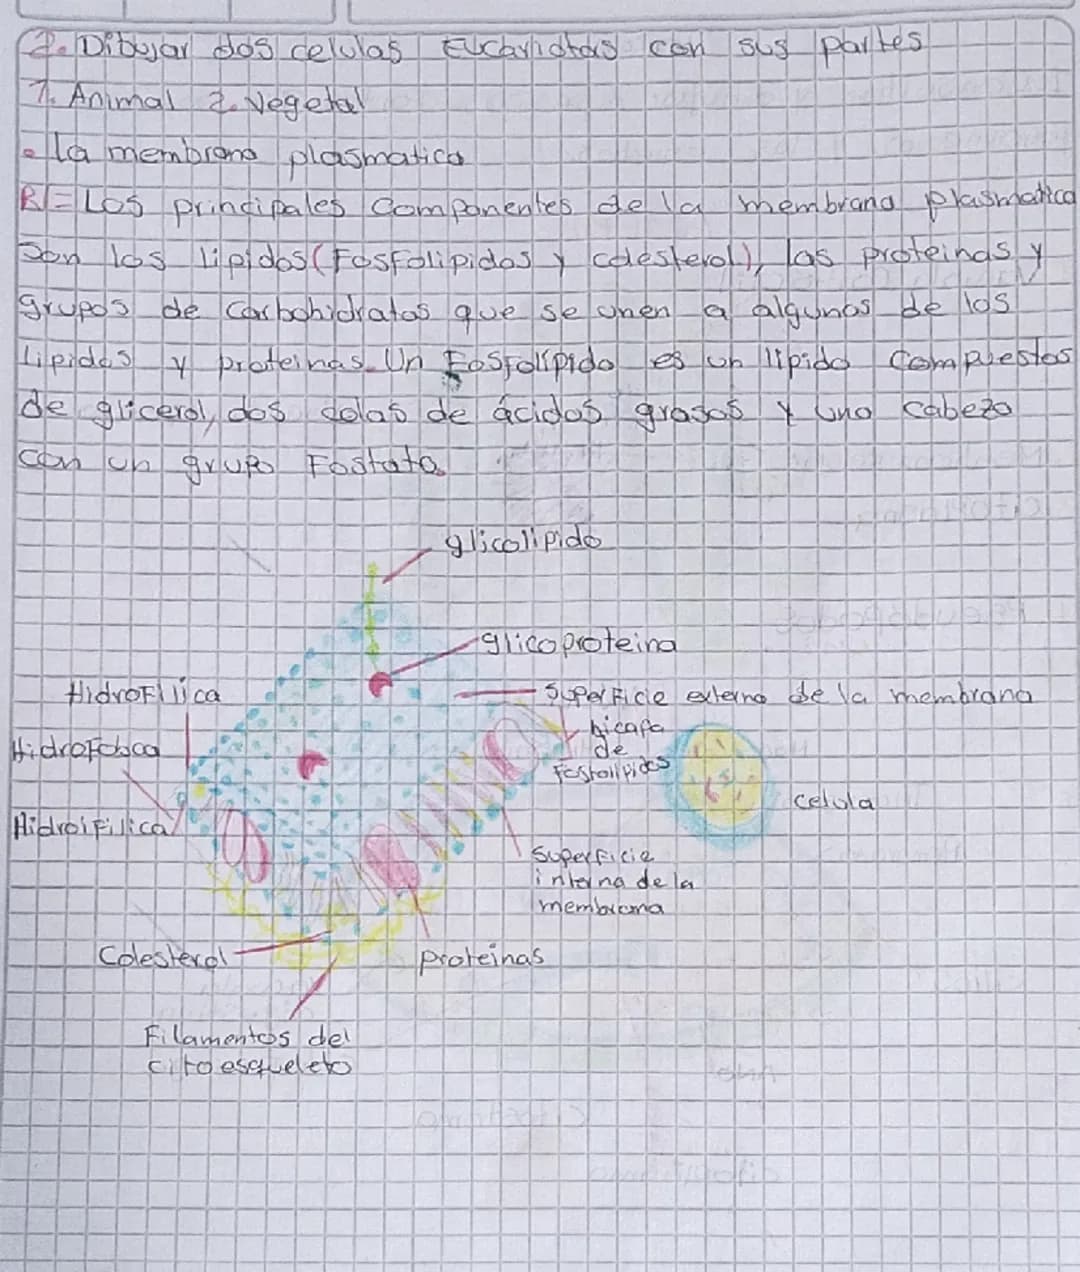 2. Dibujar dos celulas Eucariotas con sus partes
1. Animal 2. Vegetal
• La membrana plasmatica
R/= Los principales componentes de la membrana plasmatica
son los lipidos (Fosfolipidos y colesterol), las proteinas y
grupos de carbohidratos que se unen a algunos de los
lipidos y proteinas. Un Fosfolípido es un lípido compuestos
de glicerol, dos colas de ácidos grasos y una cabeza
con un grupo Fosfato.
glicolipido
glicoproteina
HidroFilica
Superficie externa de la membrana
bicapa
de
Fosfolipidos
HidroFobica
celula
HidroiFilica
Superficie
interna de la
membrana
Colesterol
proteinas
Filamentos del
citoesqueleto